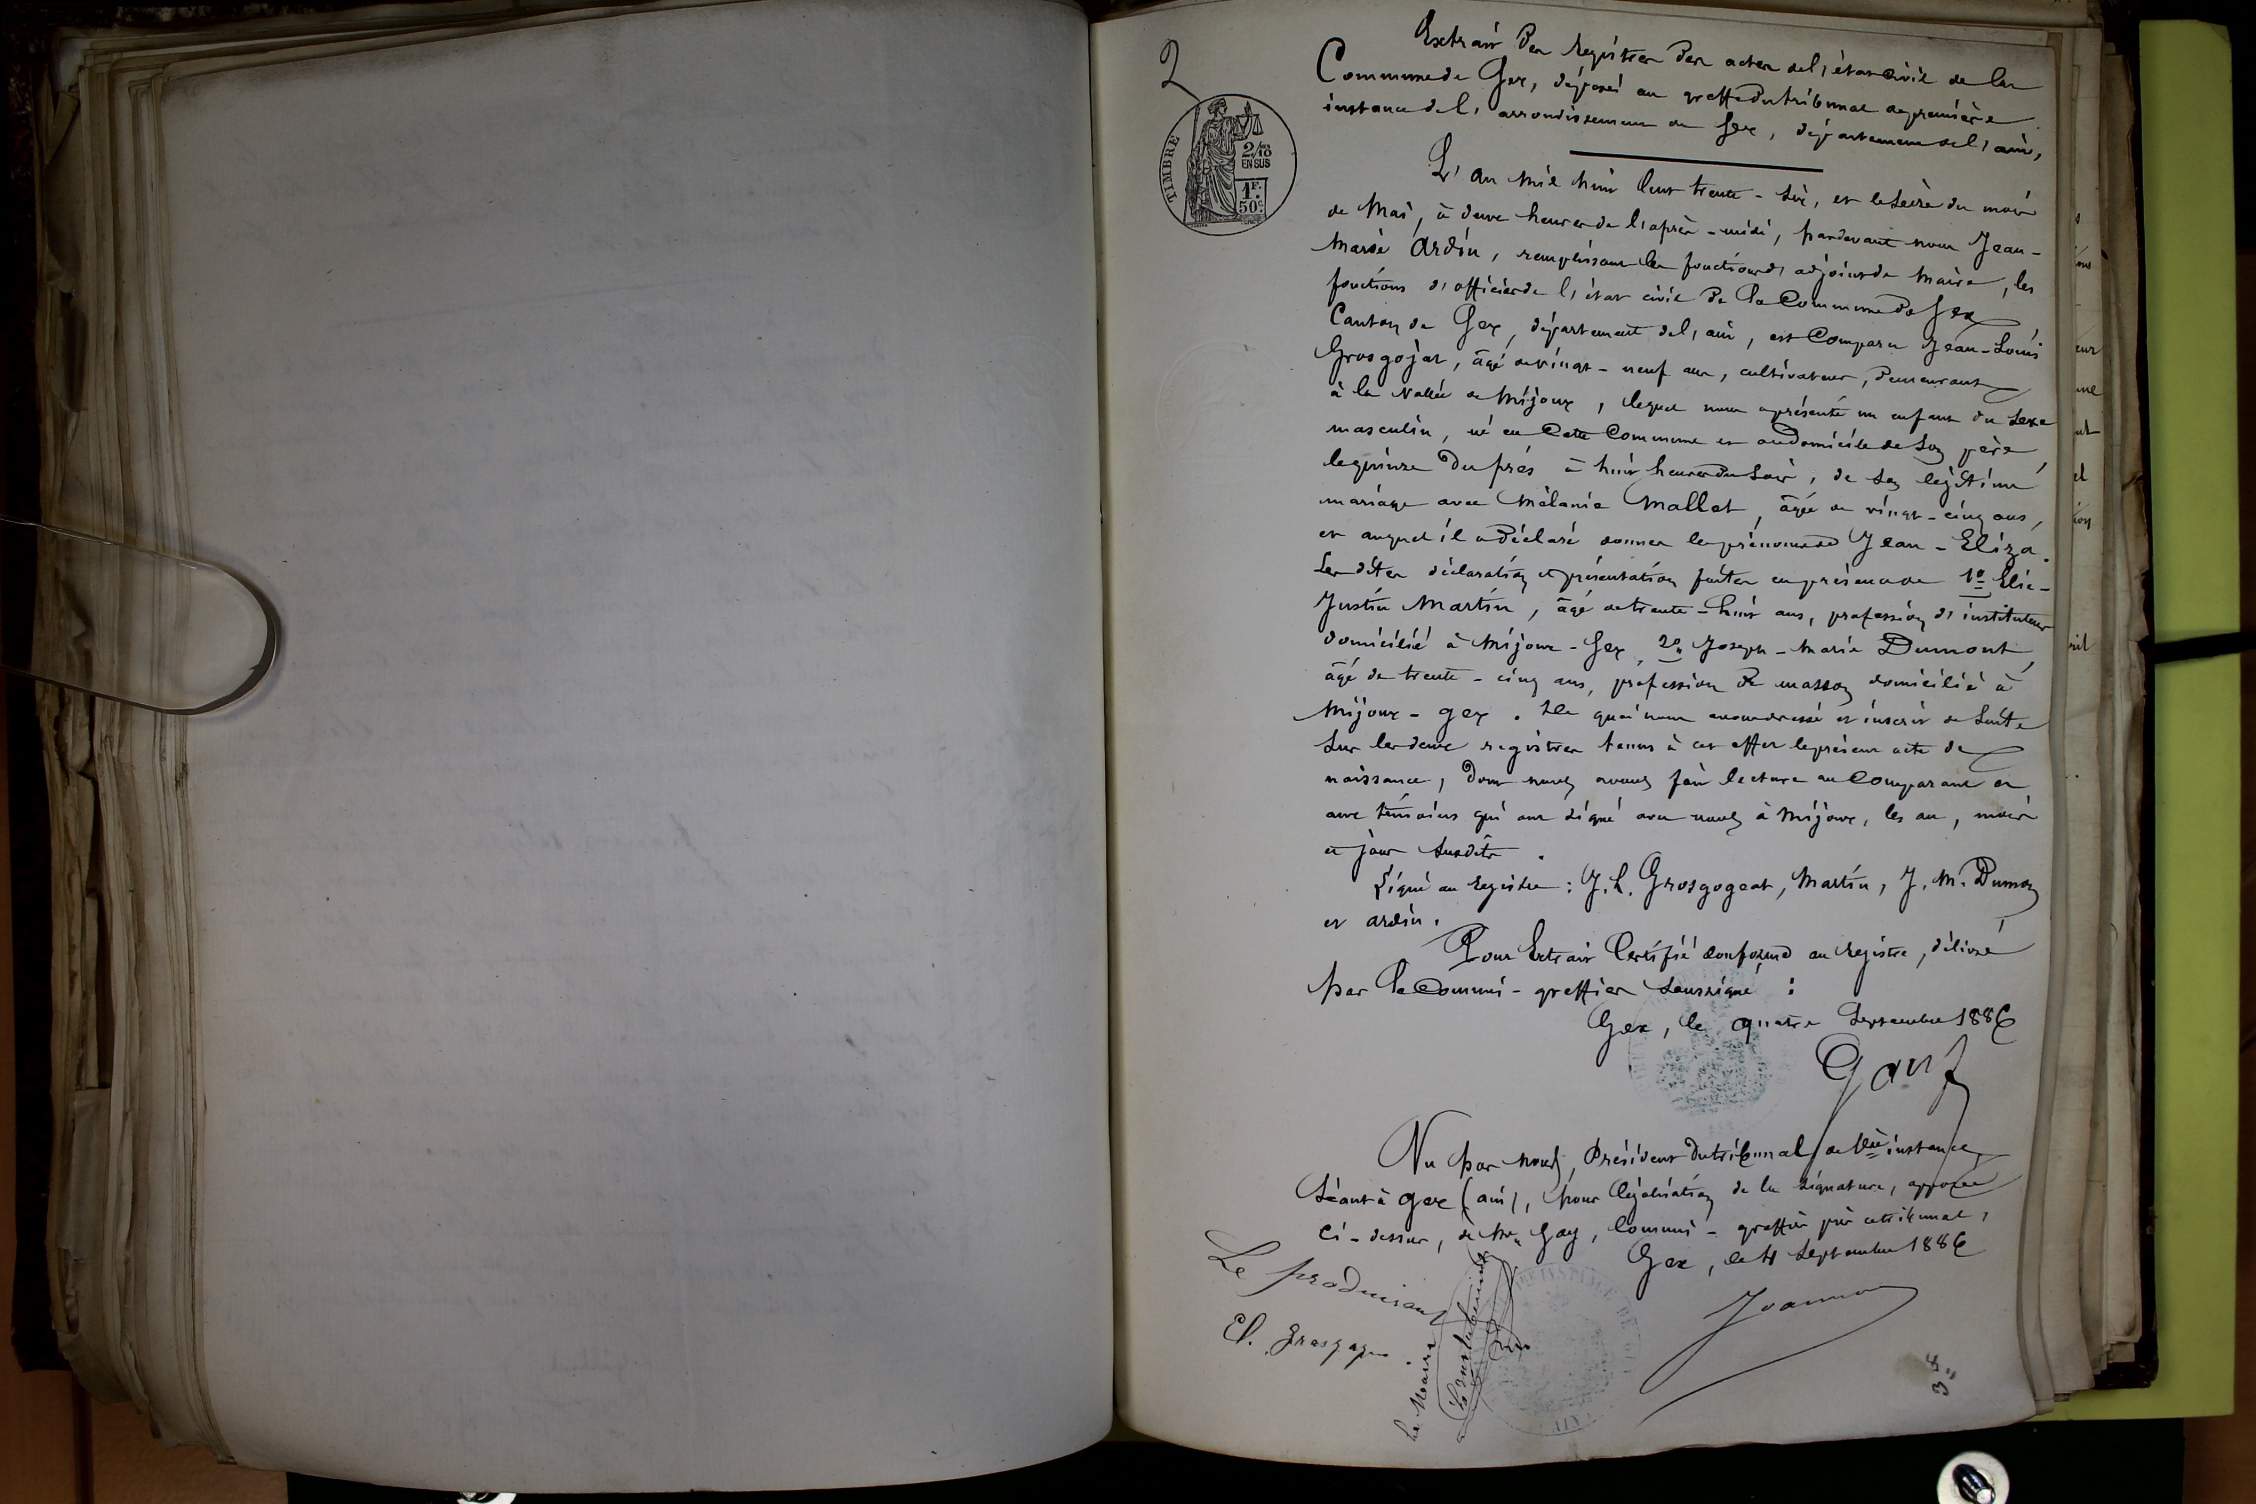 2
TIMBRE
2/10
EN SUS
1F.
50c.
Extrait des registres des actes de l'état civil de la
Commune de Gex, déposé au greffe du tribunal de première
instance de l'arrondissement de Gex, département de l'ain,
L'an mil huit cent trente-six, et le seize du mois
de Mai, à deux heures de l'après-midi, pardevant nous Jean-
Marie Ardin, remplissant les fonctions d'adjoint de Maire, les
fonctions d'officier de l'état civil de la Commune de Gex
Canton de Gex, département de l'ain, est Comparu Jean-Louis
Grosgojat, âgé de vingt-neuf ans, cultivateur, demeurant
à la Vallée de Mijoux, lequel nous a présenté un enfant du sexe
masculin, né en Cette Commune et au domicile de son père,
le quinze du prés à huit heures du soir, de son légitime
mariage avec Mélanie Mallet, âgée de vingt-cinq ans,
et auquel il a déclaré donner les prénoms de Jean-Eliza.
Les dites déclaration et présentation faites en présence de 1o Elie-
Justin Martin, âgé de trente-huit ans, profession d'instituteur
domicilié à Mijoux-Gex, 2o Joseph-Marie Dumont,
âgé de trente-cinq ans, profession de masson domicilié à
Mijoux-gex. De quoi nous avons dressé et inscrit de suite
sur les deux registres tenus à cet effet le présent acte de
naissance, dont nous avons fait lecture au Comparant et
aux témoins qui ont signé avec nous à Mijoux, les an, mois
et jour susdits.
Signé au registre : J. L. Grosgogeat, Martin, J. M. Dumon
et ardin.
Pour Extrait Certifié conforme au registre, délivré
par le Commis-greffier soussigné :
Gex, le quatre Septembre 1886
Gay
Vu par nous, Président du tribunal de 1ère instance
séant à gex (ain), pour légalisation de la signature, apposée
ci-dessus, de Mr Gay, Commis-greffier près ce tribunal,
Gex, le 4 Septembre 1886
Le produisant
El. Grosgogea
Le Maire